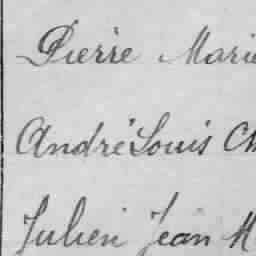 Pierre Marie
André Louis Ch
Julien Jean M